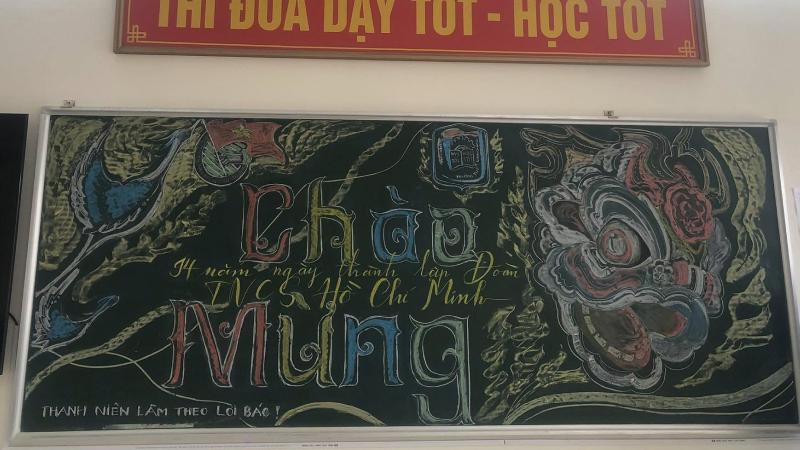 THI ĐUA DẠY TỐT - HỌC TỐT
Chào
94 năm ngày thành lập Đoàn
TNCS Hồ Chí Minh
Mừng
THANH NIÊN LÀM THEO LỜI BÁC !